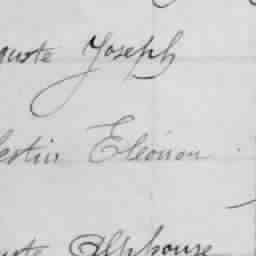 guste Joseph
lestin Eléonor
uste Alphonse